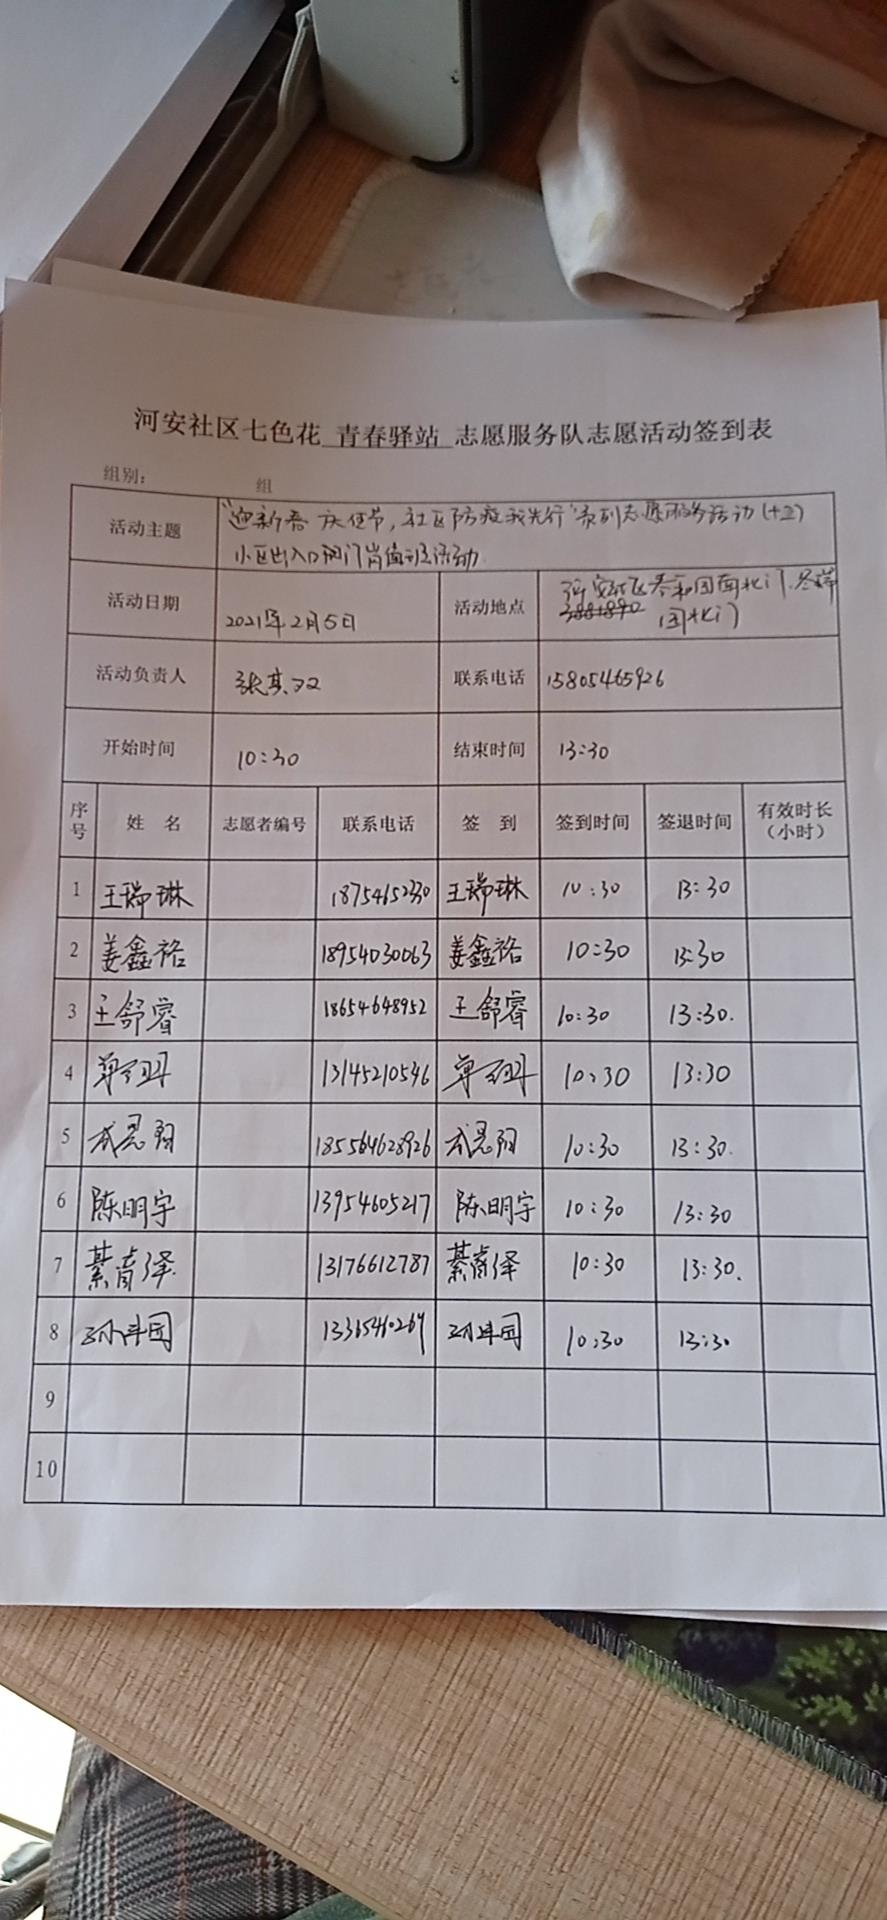 河安社区七色花 青春驿站 志愿服务队志愿活动签到表
组别： 组
活动主题 "迎新春 庆佳节，社区防疫我先行"系列志愿服务活动(十三)
小区出入口 门岗值班活动
活动日期 2021年2月5日 活动地点 河安社区泰和园南北门、
园北门
活动负责人 联系电话 15805465926
开始时间 10:30 结束时间 13:30
序号 姓 名 志愿者编号 联系电话 签 到 签到时间 签退时间 有效时长（小时）
1 王瑞琳 18754652330 王瑞琳 10:30 13:30
2 姜鑫裕 18954030063 姜鑫裕 10:30 13:30
3 王舒睿 18654648952 王舒睿 10:30 13:30.
4 13145210546 10:30 13:30
5 185564628926 10:30 13:30.
6 陈明宇 13954605217 陈明宇 10:30 13:30
7 綦育泽 13176612787 綦育泽 10:30 13:30.
8 10:30 13:30
9
10